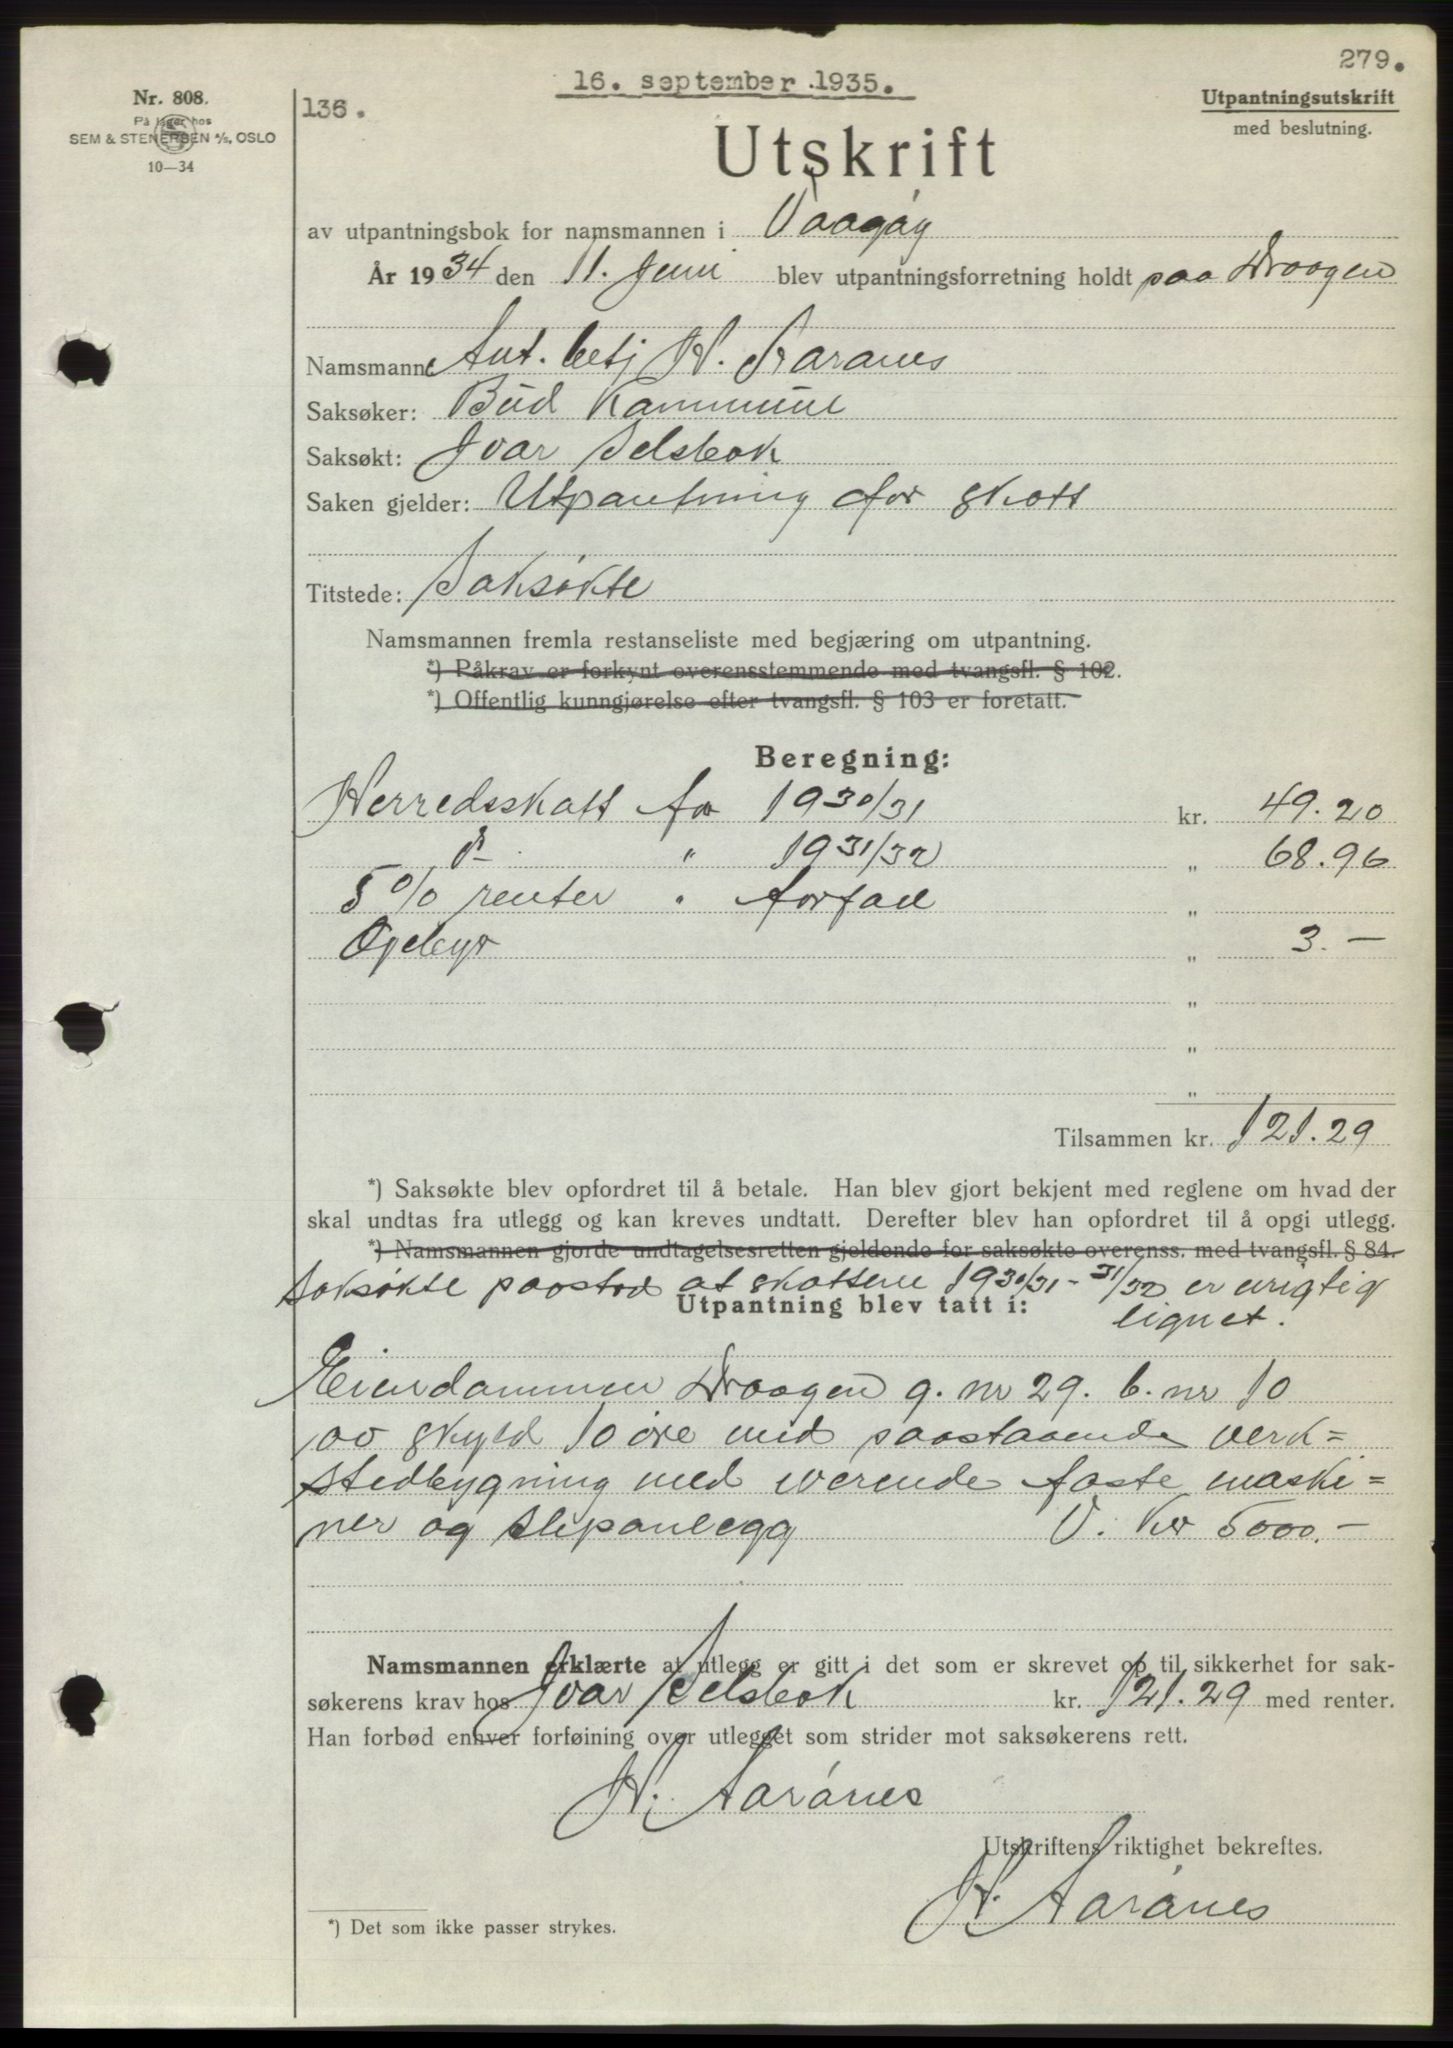 279.
16. september 1935.
Nr. 808.
På lager hos
SEM & STENERSEN A/S, OSLO
10—34
136.
Utpantningsutskrift
med beslutning.
Utskrift
av utpantningsbok for namsmannen i Vaagøy
År 1934 den 11. Juni blev utpantningsforretning holdt paa Draagen
Namsmann: Aut. betj H. Aarønes
Saksøker: Bud Kommune
Saksøkt: Ivar Selsbak
Saken gjelder: Utpantning for skatt
Titstede: Saksøkte
Namsmannen fremla restanseliste med begjæring om utpantning.
*) Påkrav er forkynt overensstemmende med tvangsfl. § 102.
*) Offentlig kunngjørelse efter tvangsfl. § 103 er foretatt.
Beregning:
Herredsskatt for 1930/31 kr. 49.20
" 1931/32 " 68.96
5 % renter " forfall "
Gebyr " 3.—
"
"
"
Tilsammen kr. 121.29
*) Saksøkte blev opfordret til å betale. Han blev gjort bekjent med reglene om hvad der
skal undtas fra utlegg og kan kreves undtatt. Derefter blev han opfordret til å opgi utlegg.
*) Namsmannen gjorde undtagelsesretten gjeldende for saksøkte overenss. med tvangsfl. § 84.
Saksøkte paastod at skattene 1930/31 - 31/32 er urigtig
lignet.
Utpantning blev tatt i:
Eiendommen Draagen g. nr 29. b. nr 10
av skyld 10 øre med paastaaende verk=
stedbygning med værende faste maski=
ner og slipanlegg V. Kr 5000.—
Namsmannen erklærte at utlegg er gitt i det som er skrevet op til sikkerhet for sak-
søkerens krav hos Ivar Selsbak kr. 121.29 med renter.
Han forbød enhver forføining over utlegget som strider mot saksøkerens rett.
H. Aarønes
Utskriftens riktighet bekreftes.
H. Aarønes
*) Det som ikke passer strykes.